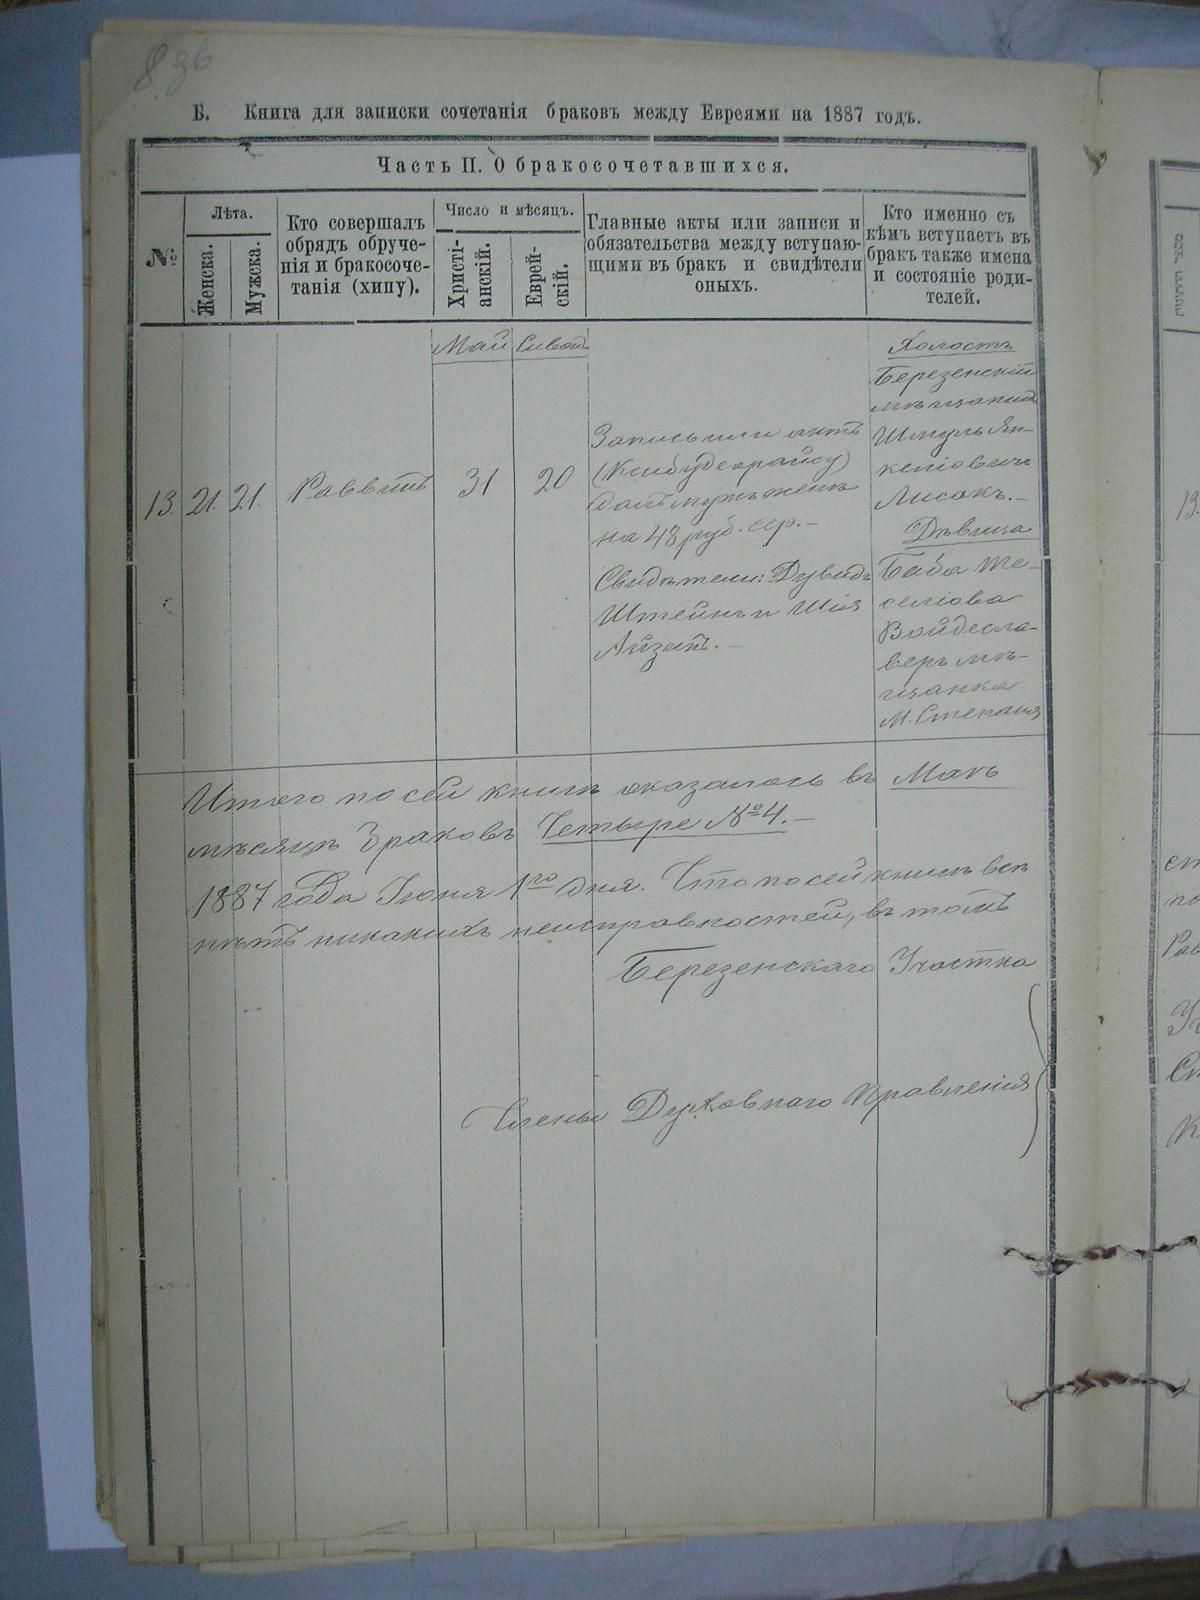 Б. Книга для записки сочетанія браковъ между Евреями на 1887 годъ.
Часть II. О бракосочетавшихся.
№
Лѣта.
Женска.
Мужска.
Кто совершалъ
обрядъ обруче-
нія и бракосоче-
танія (хипу).
Число и мѣсяцъ.
Христі-
анскій.
Еврей-
скій.
Главные акты или записи и
обязательства между вступаю-
щими въ бракъ и свидѣтели
оныхъ.
Кто именно съ
кѣмъ вступаетъ въ
бракъ также имена
и состояніе роди-
телей.
Май
13. 21. 21. Раввинъ 31 20
Запись или актъ
далъ мужъ женѣ
на 48 руб. сер.–
Свидѣтели: Дувидъ
Штейнъ и Шія
Айзенъ.–
Холостъ
Березенскій
мѣщанинъ
Шмуль Ян-
келіовичъ
Лисакъ.–
Дѣвица
Баба Іо-
селіова
Войдесла-
веръ мѣ-
щанка
М. Степаня
Итого по сей книгѣ оказалось въ Маѣ
мѣсяцѣ браковъ Четыре № 4.–
1887 года Іюня 1го дня. Что по сей книгѣ
нѣтъ никакихъ неисправностей, въ томъ
Березенскаго Участка
Члены Духовнаго Правленія
13.